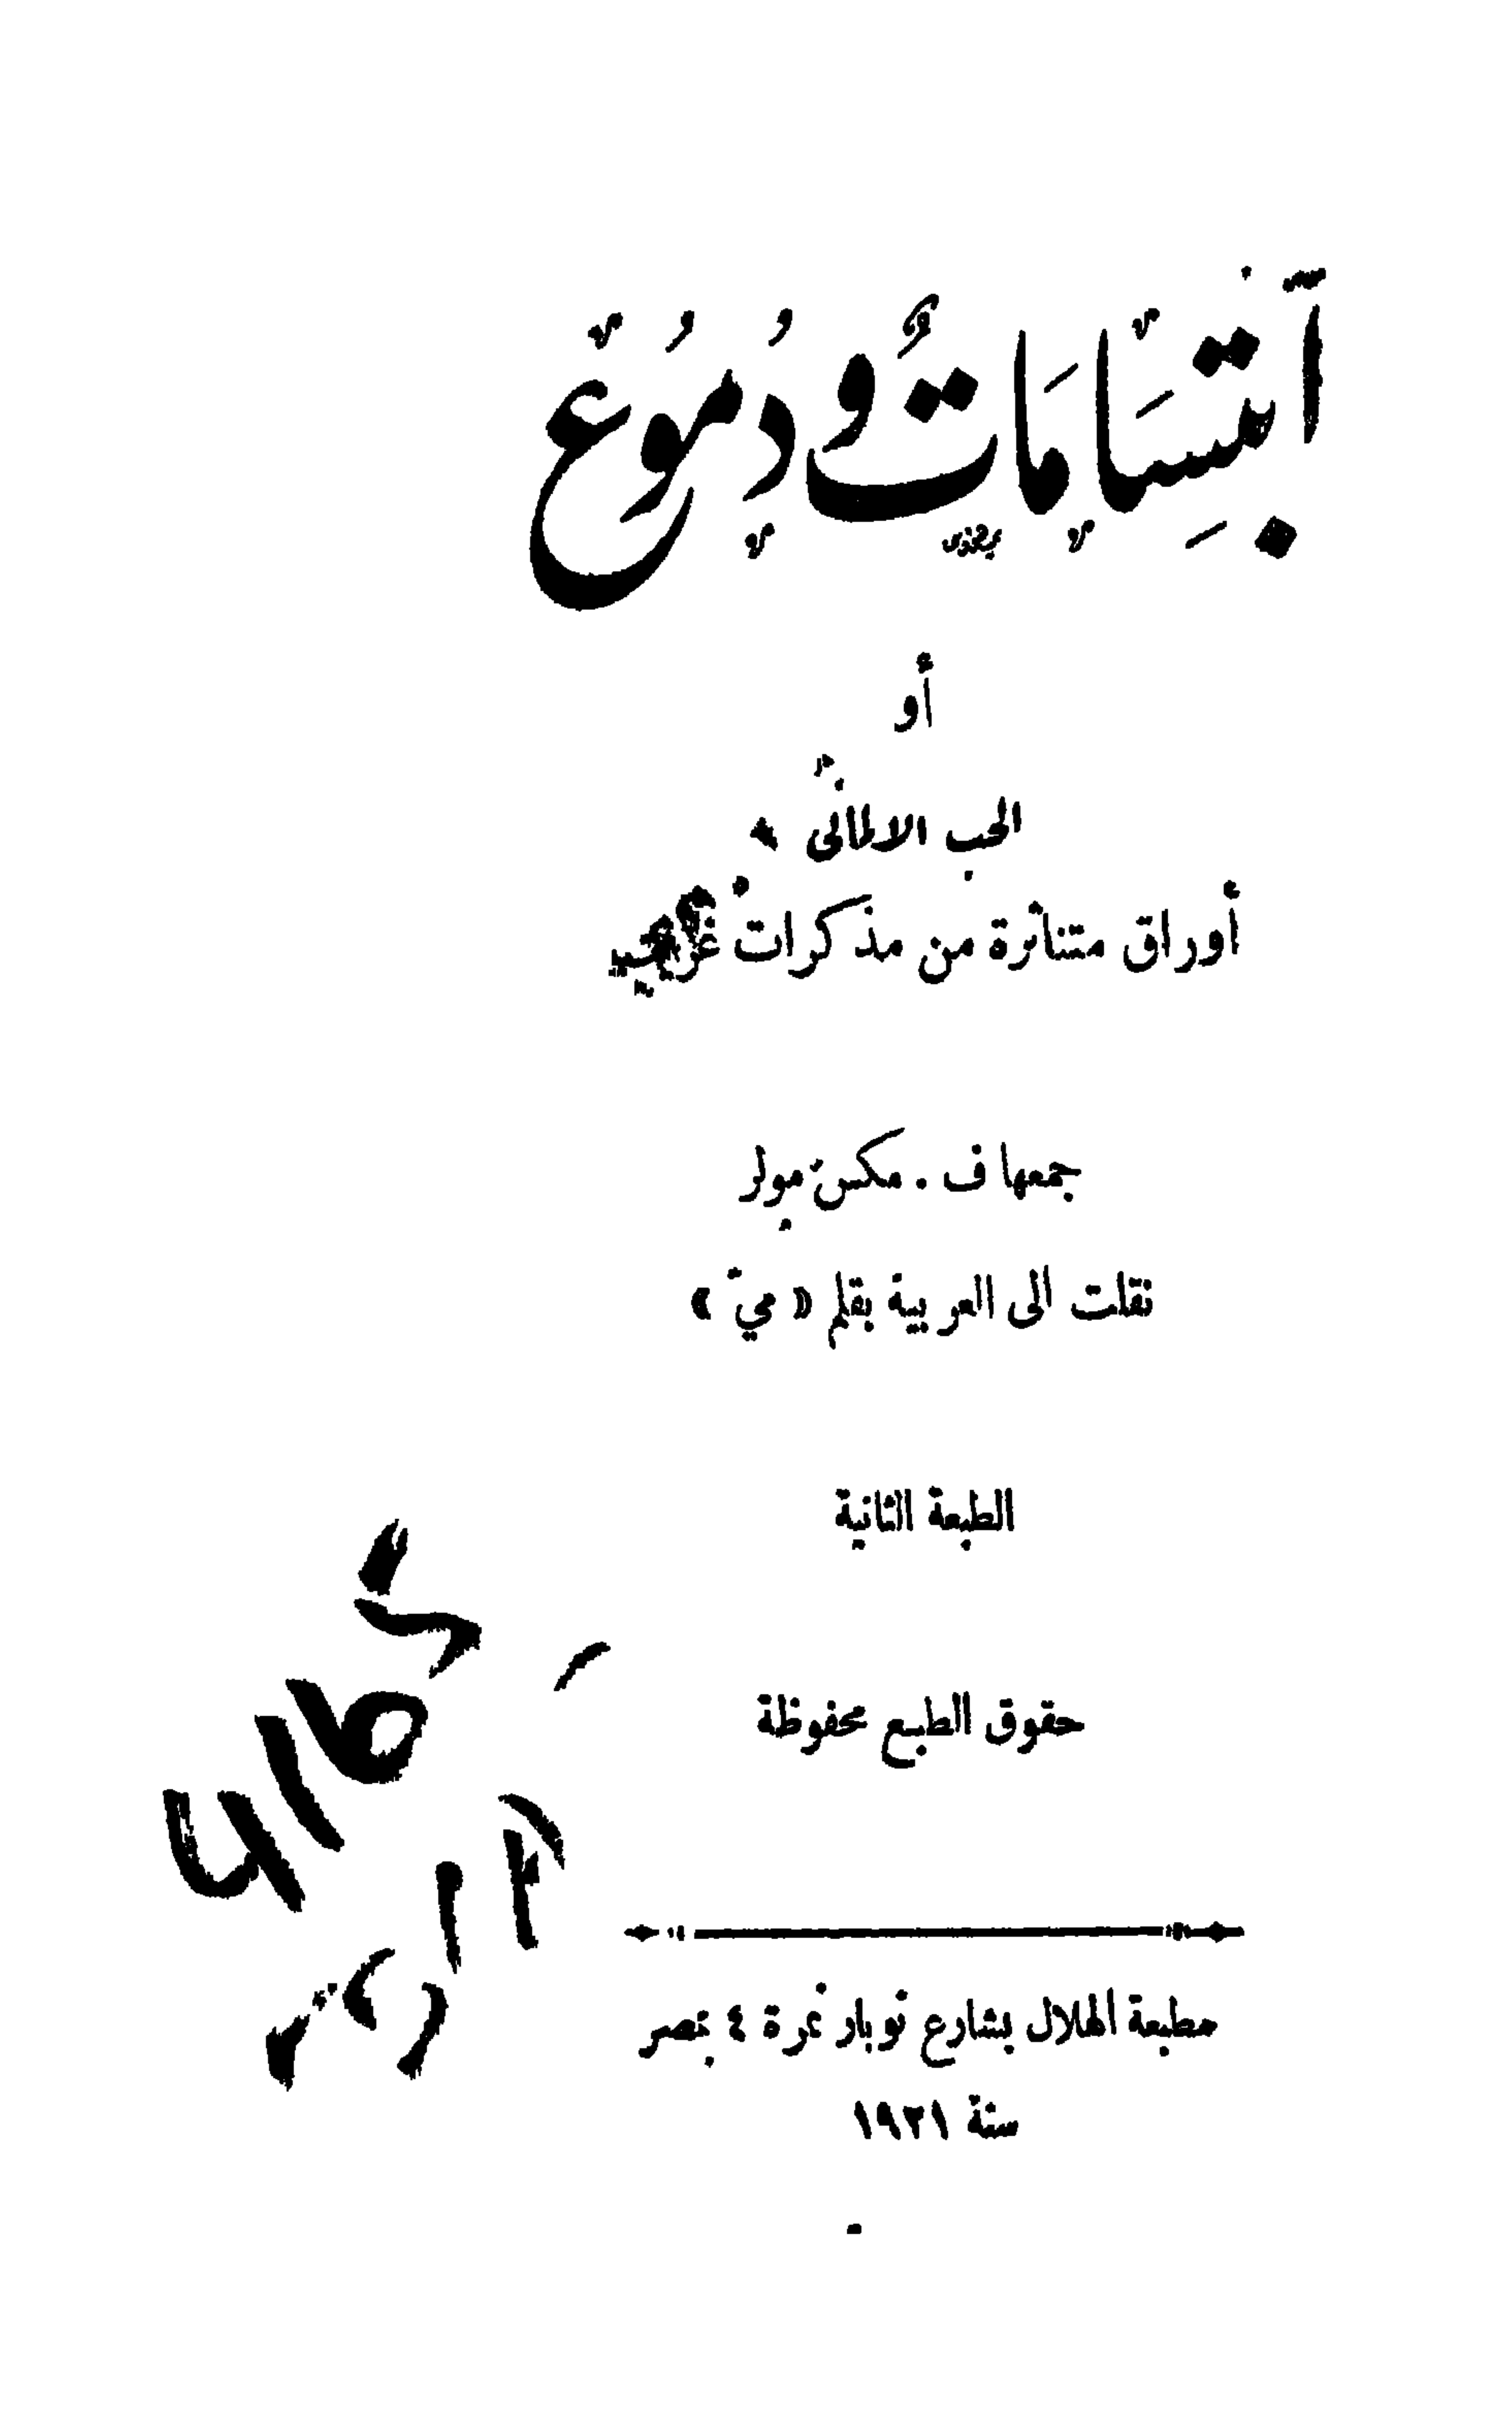 ٱبتِسَامَاتٌ وَدُمُوعٌ
أو
الحب الالمانى
أوراق متناثرة من مذكرات غريب
جمعها ف . مكس مولر
نقلت الى العربية بقلم « ميّ »
الطبعة الثانية
حقوق الطبع محفوظة
مطبعة الهلال بشارع نوبار نمرة ٤ بمصر
سنة ١٩٢١